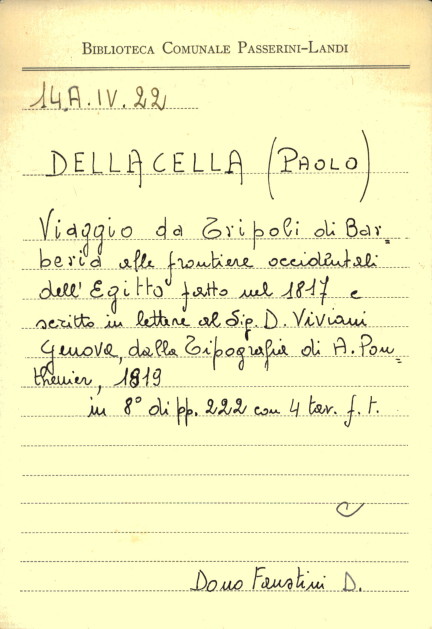 BIBLIOTECA COMUNALE PASSERINI-LANDI
14A.IV.22
DELLACELLA (PAOLO)
Viaggio da Tripoli di Bar=
beria alle frontiere occidentali
dell'Egitto fatto nel 1817 e
scritto in lettere al Sig. D. Viviani
Genova, dalla Tipografia di A. Pon=
thenier, 1819
in 8° di pp. 222 con 4 tav. f. t.
C
Dono Faustini D.